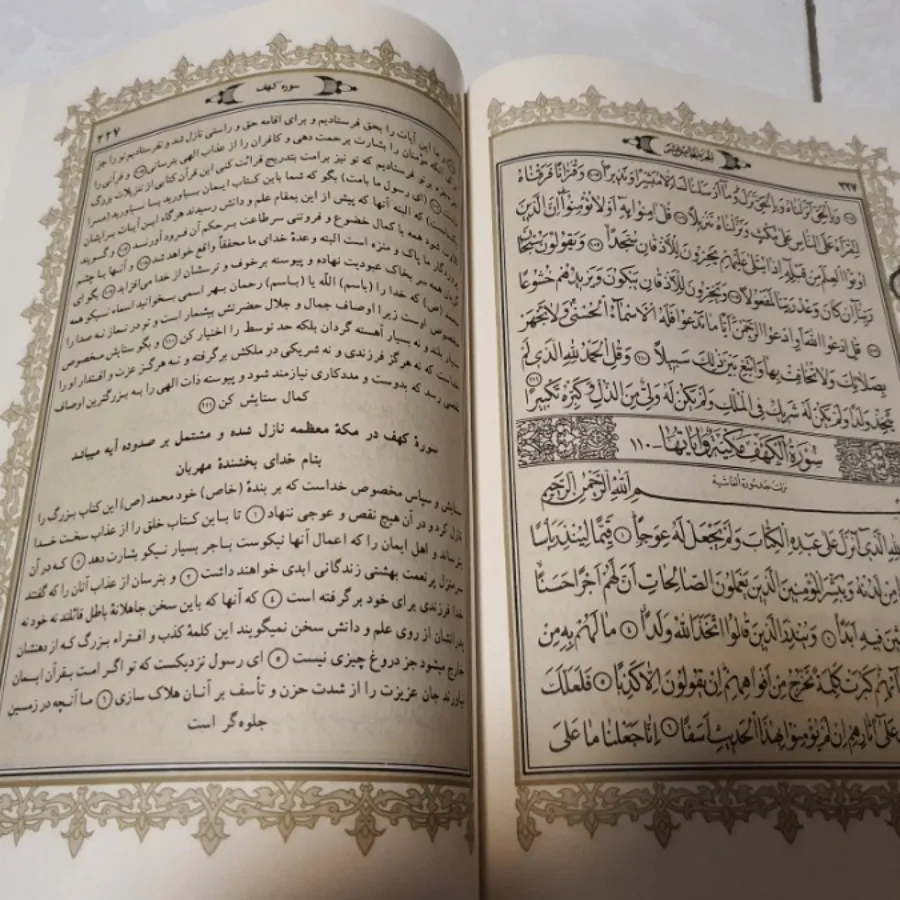 الجزء الخامس عشر
٢٢٧
وَبِالْحَقِّ اَنْزَلْنَاهُ وَبِالْحَقِّ نَزَلَ وَمَا اَرْسَلْنَاكَ اِلَّا مُبَشِّرًا وَنَذِيرًا ۱۰۵ وَقُرْاٰنًا فَرَقْنَاهُ
لِتَقْرَاَهُ عَلَى النَّاسِ عَلٰى مُكْثٍ وَنَزَّلْنَاهُ تَنْزِيلًا ۱۰۶ قُلْ اٰمِنُوا بِهِ اَوْ لَا تُؤْمِنُوا اِنَّ الَّذِينَ
اُوتُوا الْعِلْمَ مِنْ قَبْلِهِ اِذَا يُتْلٰى عَلَيْهِمْ يَخِرُّونَ لِلْاَذْقَانِ سُجَّدًا ۱۰۷ وَيَقُولُونَ سُبْحَانَ
رَبِّنَا اِنْ كَانَ وَعْدُ رَبِّنَا لَمَفْعُولًا ۱۰۸ وَيَخِرُّونَ لِلْاَذْقَانِ يَبْكُونَ وَيَزِيدُهُمْ خُشُوعًا
۱۰۹ قُلِ ادْعُوا اللّٰهَ اَوِ ادْعُوا الرَّحْمٰنَ اَيًّا مَا تَدْعُوا فَلَهُ الْاَسْمَاۤءُ الْحُسْنٰى وَلَا تَجْهَرْ
بِصَلَاتِكَ وَلَا تُخَافِتْ بِهَا وَابْتَغِ بَيْنَ ذٰلِكَ سَبِيلًا ۱۱۰ وَقُلِ الْحَمْدُ لِلّٰهِ الَّذِي لَمْ
يَتَّخِذْ وَلَدًا وَلَمْ يَكُنْ لَهُ شَرِيكٌ فِي الْمُلْكِ وَلَمْ يَكُنْ لَهُ وَلِيٌّ مِنَ الذُّلِّ وَكَبِّرْهُ تَكْبِيرًا ۱۱۱
سُورَةُ الْكَهْفِ مَكِّيَّةٌ وَاٰيَاتُهَا ۱۱۰
نزلت بعد سورة الغاشية
بِسْمِ اللّٰهِ الرَّحْمٰنِ الرَّحِيمِ
لِلّٰهِ الَّذِي اَنْزَلَ عَلٰى عَبْدِهِ الْكِتَابَ وَلَمْ يَجْعَلْ لَهُ عِوَجًا ۱ قَيِّمًا لِيُنْذِرَ بَاْسًا
مِنْ لَدُنْهُ وَيُبَشِّرَ الْمُؤْمِنِينَ الَّذِينَ يَعْمَلُونَ الصَّالِحَاتِ اَنَّ لَهُمْ اَجْرًا حَسَنًا
فِيهِ اَبَدًا ۳ وَيُنْذِرَ الَّذِينَ قَالُوا اتَّخَذَ اللّٰهُ وَلَدًا ۴ مَا لَهُمْ بِهِ مِنْ
كَبُرَتْ كَلِمَةً تَخْرُجُ مِنْ اَفْوَاهِهِمْ اِنْ يَقُولُونَ اِلَّا كَذِبًا ۵ فَلَعَلَّكَ
عَلٰى اٰثَارِهِمْ اِنْ لَمْ يُؤْمِنُوا بِهٰذَا الْحَدِيثِ اَسَفًا ۶ اِنَّا جَعَلْنَا مَا عَلَى
سوره کهف
۲۲۷
و ما این آیات را بحق فرستادیم و برای اقامه حق و راستی نازل شد و نفرستادیم تو را جز
برای آنکه مؤمنان را بشارت برحمت دهی و کافران را از عذاب الهی بترسانی ۱۰۵ و قرآنی را
جزء جزء بر تو فرستادیم که تو نیز برامت بتدریج قرائت کنی این قرآن کتابی از تنزیلات بزرگ
ماست ۱۰۶ (ای رسول ما بامت) بگو که شما باین کتاب ایمان بیاورید یا نیاورید (مرا
یکسانست) که البته آنها که پیش از این بمقام علم و دانش رسیدند هرگاه این آیات برایشان
تلاوت شود همه با کمال خضوع و فروتنی سرطاعت بر حکم آن فرود آورند ۱۰۷ و گویند
پروردگار ما پاک و منزه است البته وعدهٔ خدای ما محققاً واقع خواهد شد ۱۰۸ و آنها با چشم
گریان همه سر بخاک عبودیت نهاده و پیوسته برخوف و ترسشان از خدا می‌افزاید ۱۰۹ بگو ای
محمد (ص) که خدا را (باسم) اللّه یا (باسم) رحمان بهر اسمی بخوانید اسماء نیکو همه
مخصوص اوست زیرا اوصاف جمال و جلال حضرتش بیشمار است و تو در نماز نه صدا را
بسیار بلند و نه بسیار آهسته گردان بلکه حد توسط را اختیار کن ۱۱۰ و بگو ستایش مخصوص
خداست که نه هرگز فرزندی و نه شریکی در ملکش برگرفته و نه هرگز عزت و اقتدار او را
نقصی رسد که بدوست و مددکاری نیازمند شود و پیوسته ذات الهی را به بزرگترین اوصاف
کمال ستایش کن ۱۱۱
سورهٔ کهف در مکهٔ معظمه نازل شده و مشتمل بر صد‌وده آیه میباشد
بنام خدای بخشندهٔ مهربان
ستایش و سپاس مخصوص خداست که بر بندهٔ (خاص) خود محمد (ص) این کتاب بزرگ را
نازل کرد و در آن هیچ نقص و عوجی ننهاد ۱ تا با این کتاب خلق را از عذاب سخت خدا
بترساند و اهل ایمان را که اعمال آنها نیکوست باجر بسیار نیکو بشارت دهد ۲ که در آن
سرمنزل پرنعمت بهشتی زندگانی ابدی خواهند داشت ۳ و بترسان از عذاب آنان را که گفتند
خدا فرزندی برای خود برگرفته است ۴ که آنها که باین سخن جاهلانهٔ باطل قائلند نه خود نه
پدرانشان از روی علم و دانش سخن نمیگویند این کلمهٔ کذب و افتراء بزرگ که از دهنشان
خارج میشود جز دروغ چیزی نیست ۵ ای رسول نزدیکست که تو اگر امت بقرآن ایمان
نیاورند جان عزیزت را از شدت حزن و تأسف بر آنان هلاک سازی ۶ ما آنچه در زمین
جلوه‌گر است